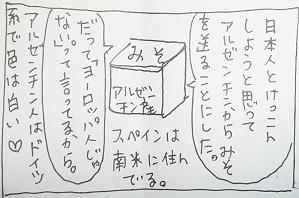 日本人とけっこん
しようと思って
アルゼンチンからみそ
を送ることにした。
みそ
アルゼン
チン産
スペインは
南米に住ん
でる。
だって"ヨーロッパ人じゃ
ない。"って言ってるから。
アルゼンチン人はドイツ
系で色は白い♡